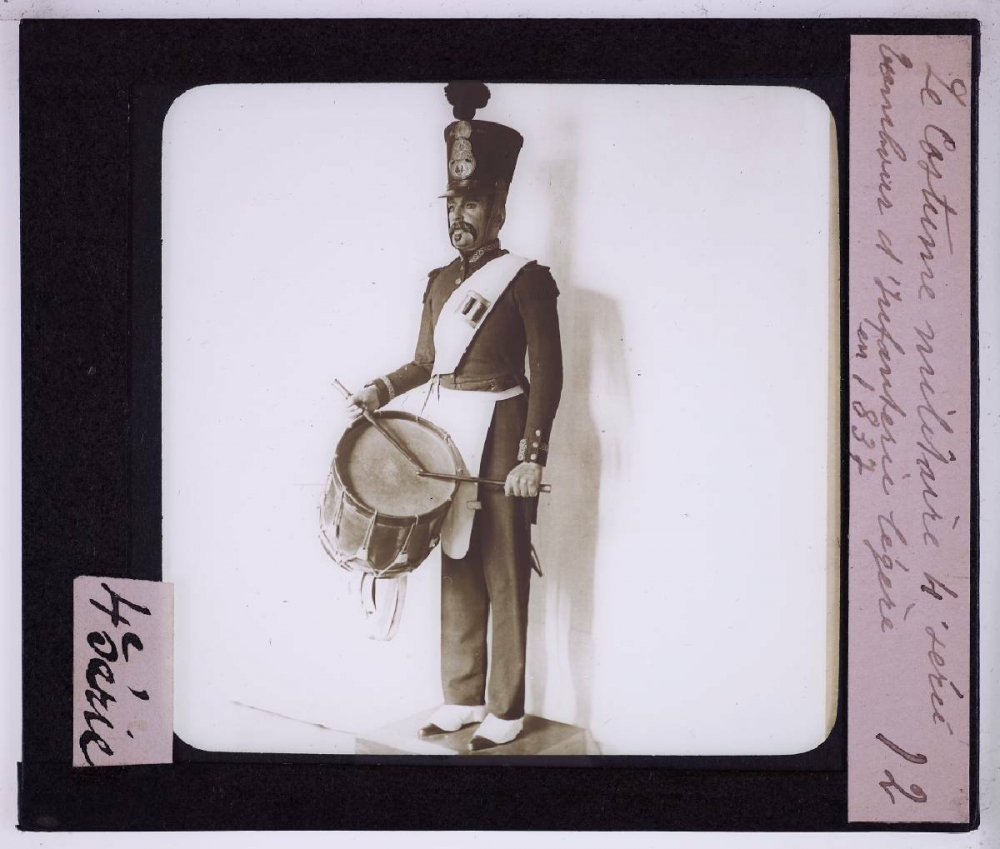 Le Costume militaire 4e série
Tambour d'Infanterie légère
en 1837
12
4e série